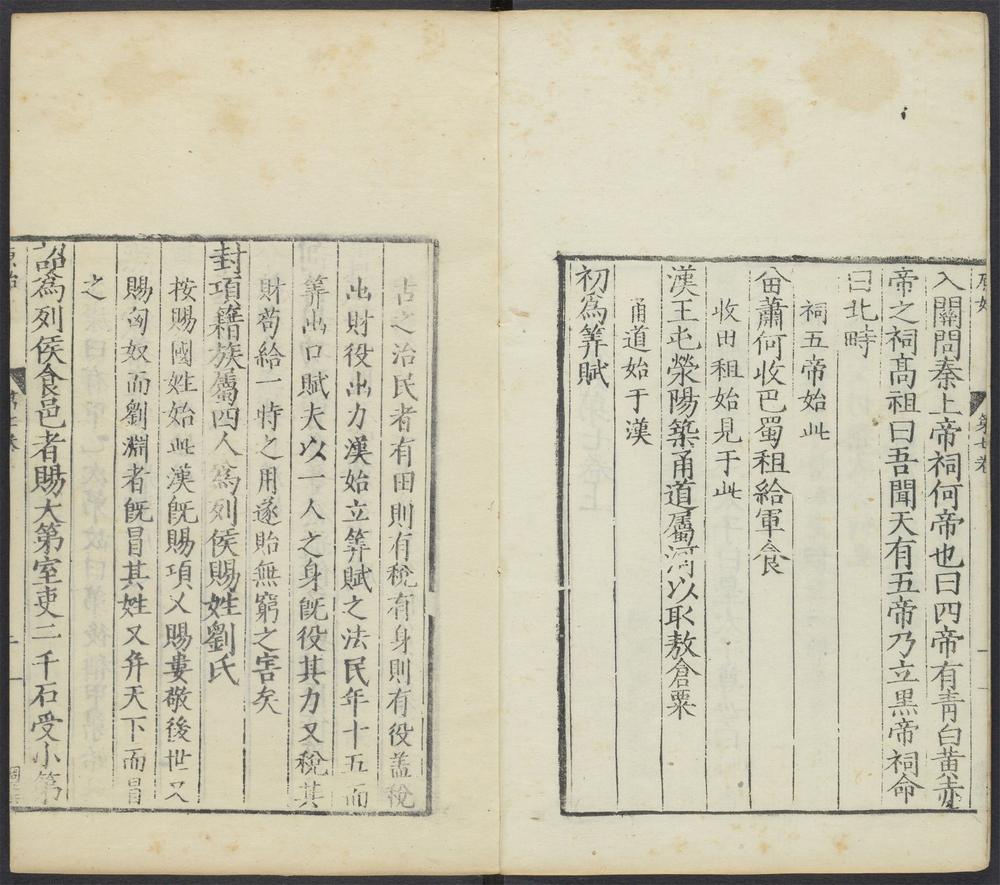 入關問秦上帝祠何帝也曰四帝有青白黃赤
帝之祠高祖曰吾聞天有五帝乃立黑帝祠命
曰北畤
祠五帝始此
留蕭何收巴蜀租給軍食
收田租始見于此
漢王屯滎陽築甬道屬河以取敖倉粟
甬道始于漢
初為筭賦
古之治民者有田則有稅有身則有役蓋稅
出財役出力漢始立筭賦之法民年十五而
筭出口賦夫以一人之身旣役其力又稅其
財苟給一時之用遂貽無窮之害矣
封項籍族屬四人爲列侯賜姓劉氏
按賜國姓始此漢旣賜項又賜婁敬後世又
賜匈奴而劉淵者旣冒其姓又弁天下而冒
之
詔爲列侯食邑者賜大第室吏二千石受小第
第七卷